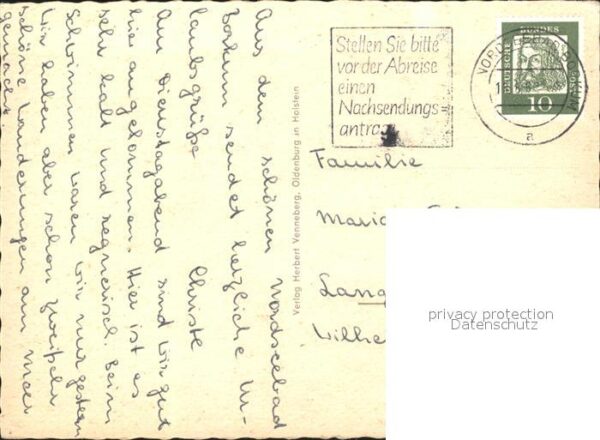 Aus dem schönen Nordseebad
Borkum sendet herzliche Ur-
laubsgrüße Christe
Am Dienstagabend sind wir gut
hier angekommen. Hier ist es
sehr kalt und regnerisch. Beim
Schwimmen waren wir nur gestern
Wir haben aber schon zweimal
schöne Wanderungen am Meer
gemacht.
Verlag Herbert Venneberg, Oldenburg in Holstein
Stellen Sie bitte
vor der Abreise
einen
Nachsendungs-
antrag
DEUTSCHE BUNDESPOST
10
a
Familie
Lang
Wilhe
privacy protection
Datenschutz